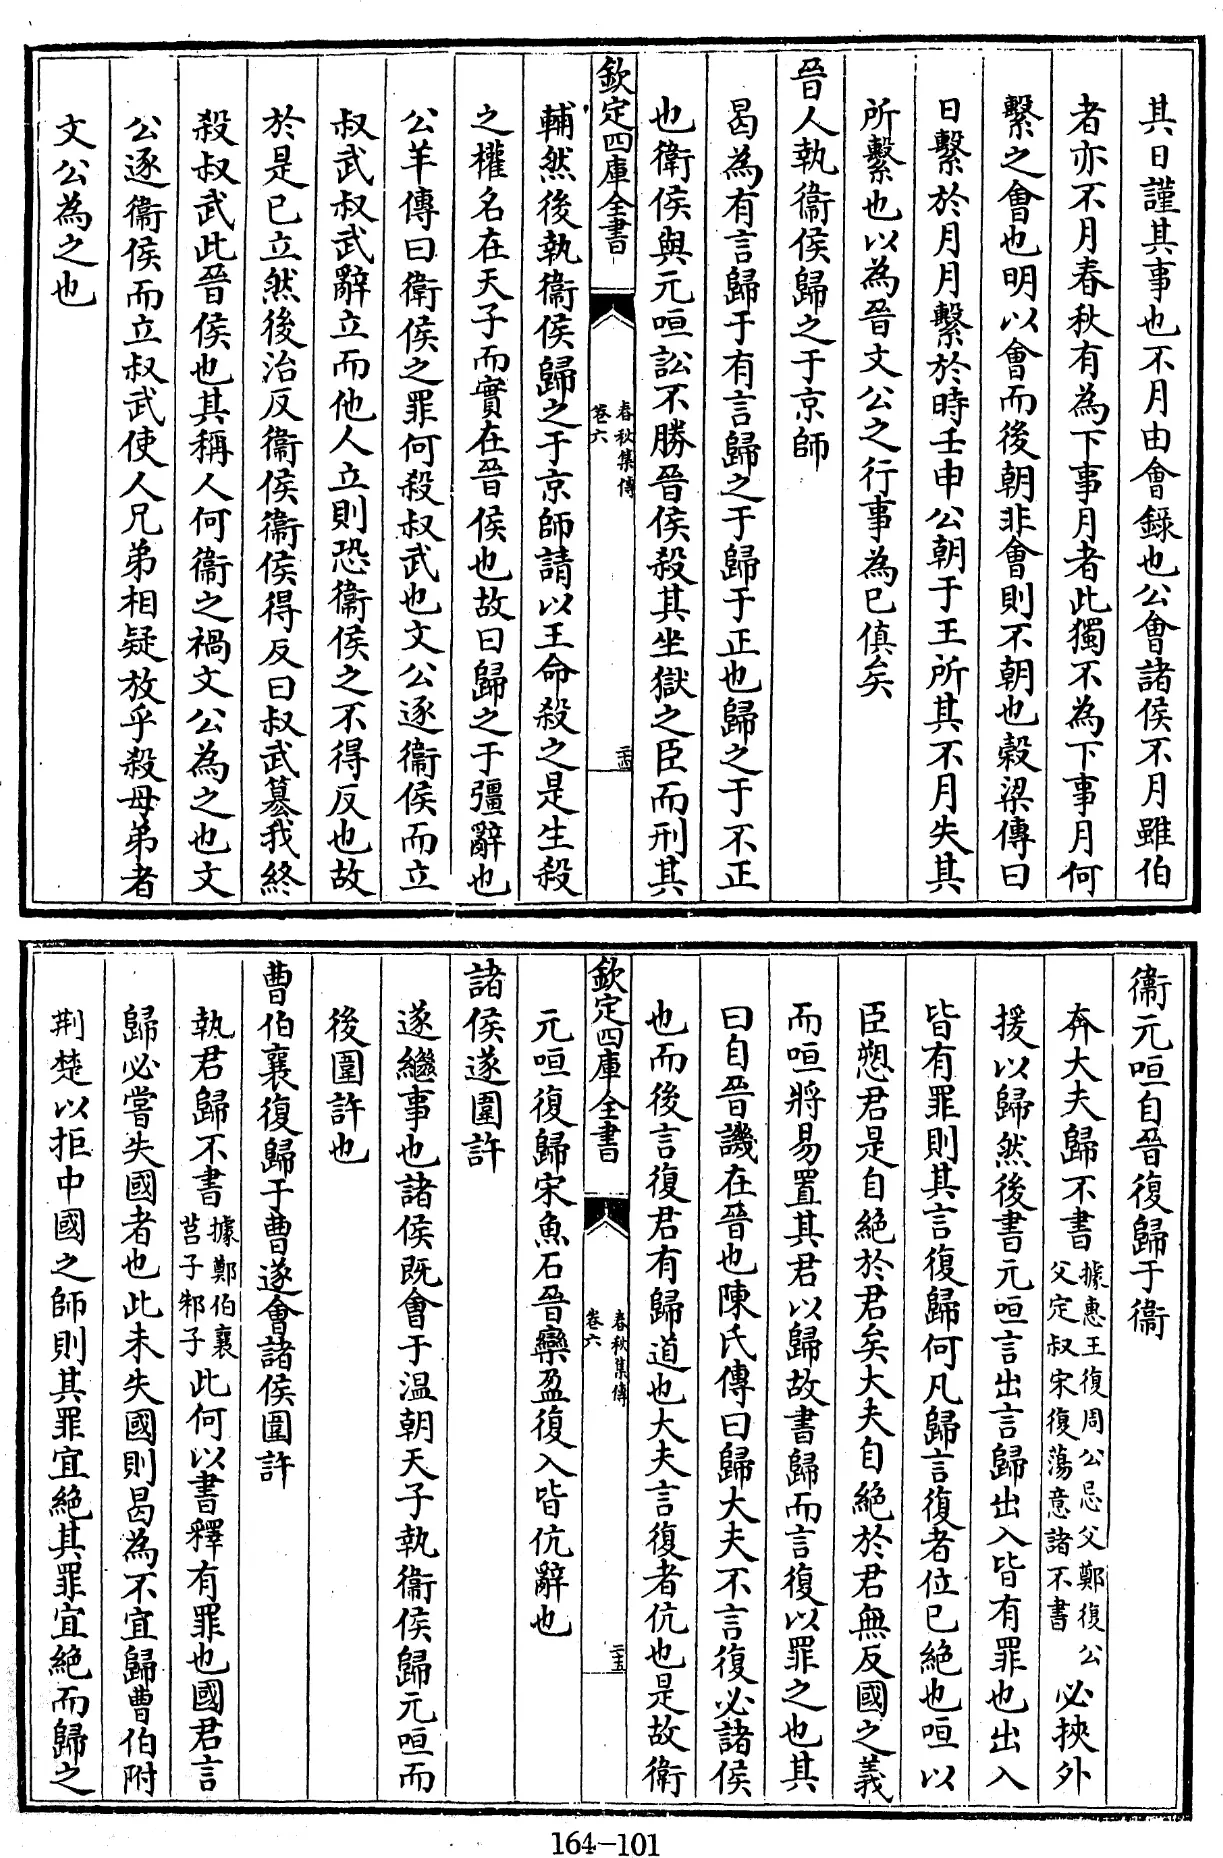 其日謹其事也不月由會録也公會諸侯不月雖伯
者亦不月春秋有為下事月者此獨不為下事月何
繫之會也明以會而後朝非會則不朝也穀梁傳曰
日繫於月月繫於時壬申公朝于王所其不月失其
所繫也以為晉文公之行事為已傎矣
晉人執衞侯歸之于京師
曷為有言歸于有言歸之于歸于正也歸之于不正
也衞侯與元咺訟不勝晉侯殺其坐獄之臣而刑其
欽定四庫全書
春秋集傳
卷六
二十四
輔然後執衞侯歸之于京師請以王命殺之是生殺
之權名在天子而實在晉侯也故曰歸之于彊辭也
公羊傳曰衞侯之罪何殺叔武也文公逐衞侯而立
叔武叔武辭立而他人立則恐衞侯之不得反也故
於是已立然後治反衞侯衞侯得反曰叔武簒我終
殺叔武此晉侯也其稱人何衞之禍文公為之也文
公逐衞侯而立叔武使人兄弟相疑放乎殺母弟者
文公為之也
衞元咺自晉復歸于衞
奔大夫歸不書據惠王復周公忌父鄭復公
父定叔宋復蕩意諸不書必挾外
援以歸然後書元咺言出言歸出入皆有罪也出入
皆有罪則其言復歸何凡歸言復者位已絶也咺以
臣愬君是自絶於君矣大夫自絶於君無反國之義
而咺將易置其君以歸故書歸而言復以罪之也其
曰自晉譏在晉也陳氏傳曰歸大夫不言復必諸侯
也而後言復君有歸道也大夫言復者伉也是故衞
欽定四庫全書
春秋集傳
卷六
二十五
元咺復歸宋魚石晉欒盈復入皆伉辭也
諸侯遂圍許
遂繼事也諸侯既會于温朝天子執衞侯歸元咺而
後圍許也
曹伯襄復歸于曹遂會諸侯圍許
執君歸不書據鄭伯襄
莒子邾子此何以書釋有罪也國君言
歸必嘗失國者也此未失國則曷為不宜歸曹伯附
荆楚以拒中國之師則其罪宜絶其罪宜絶而歸之
164-101